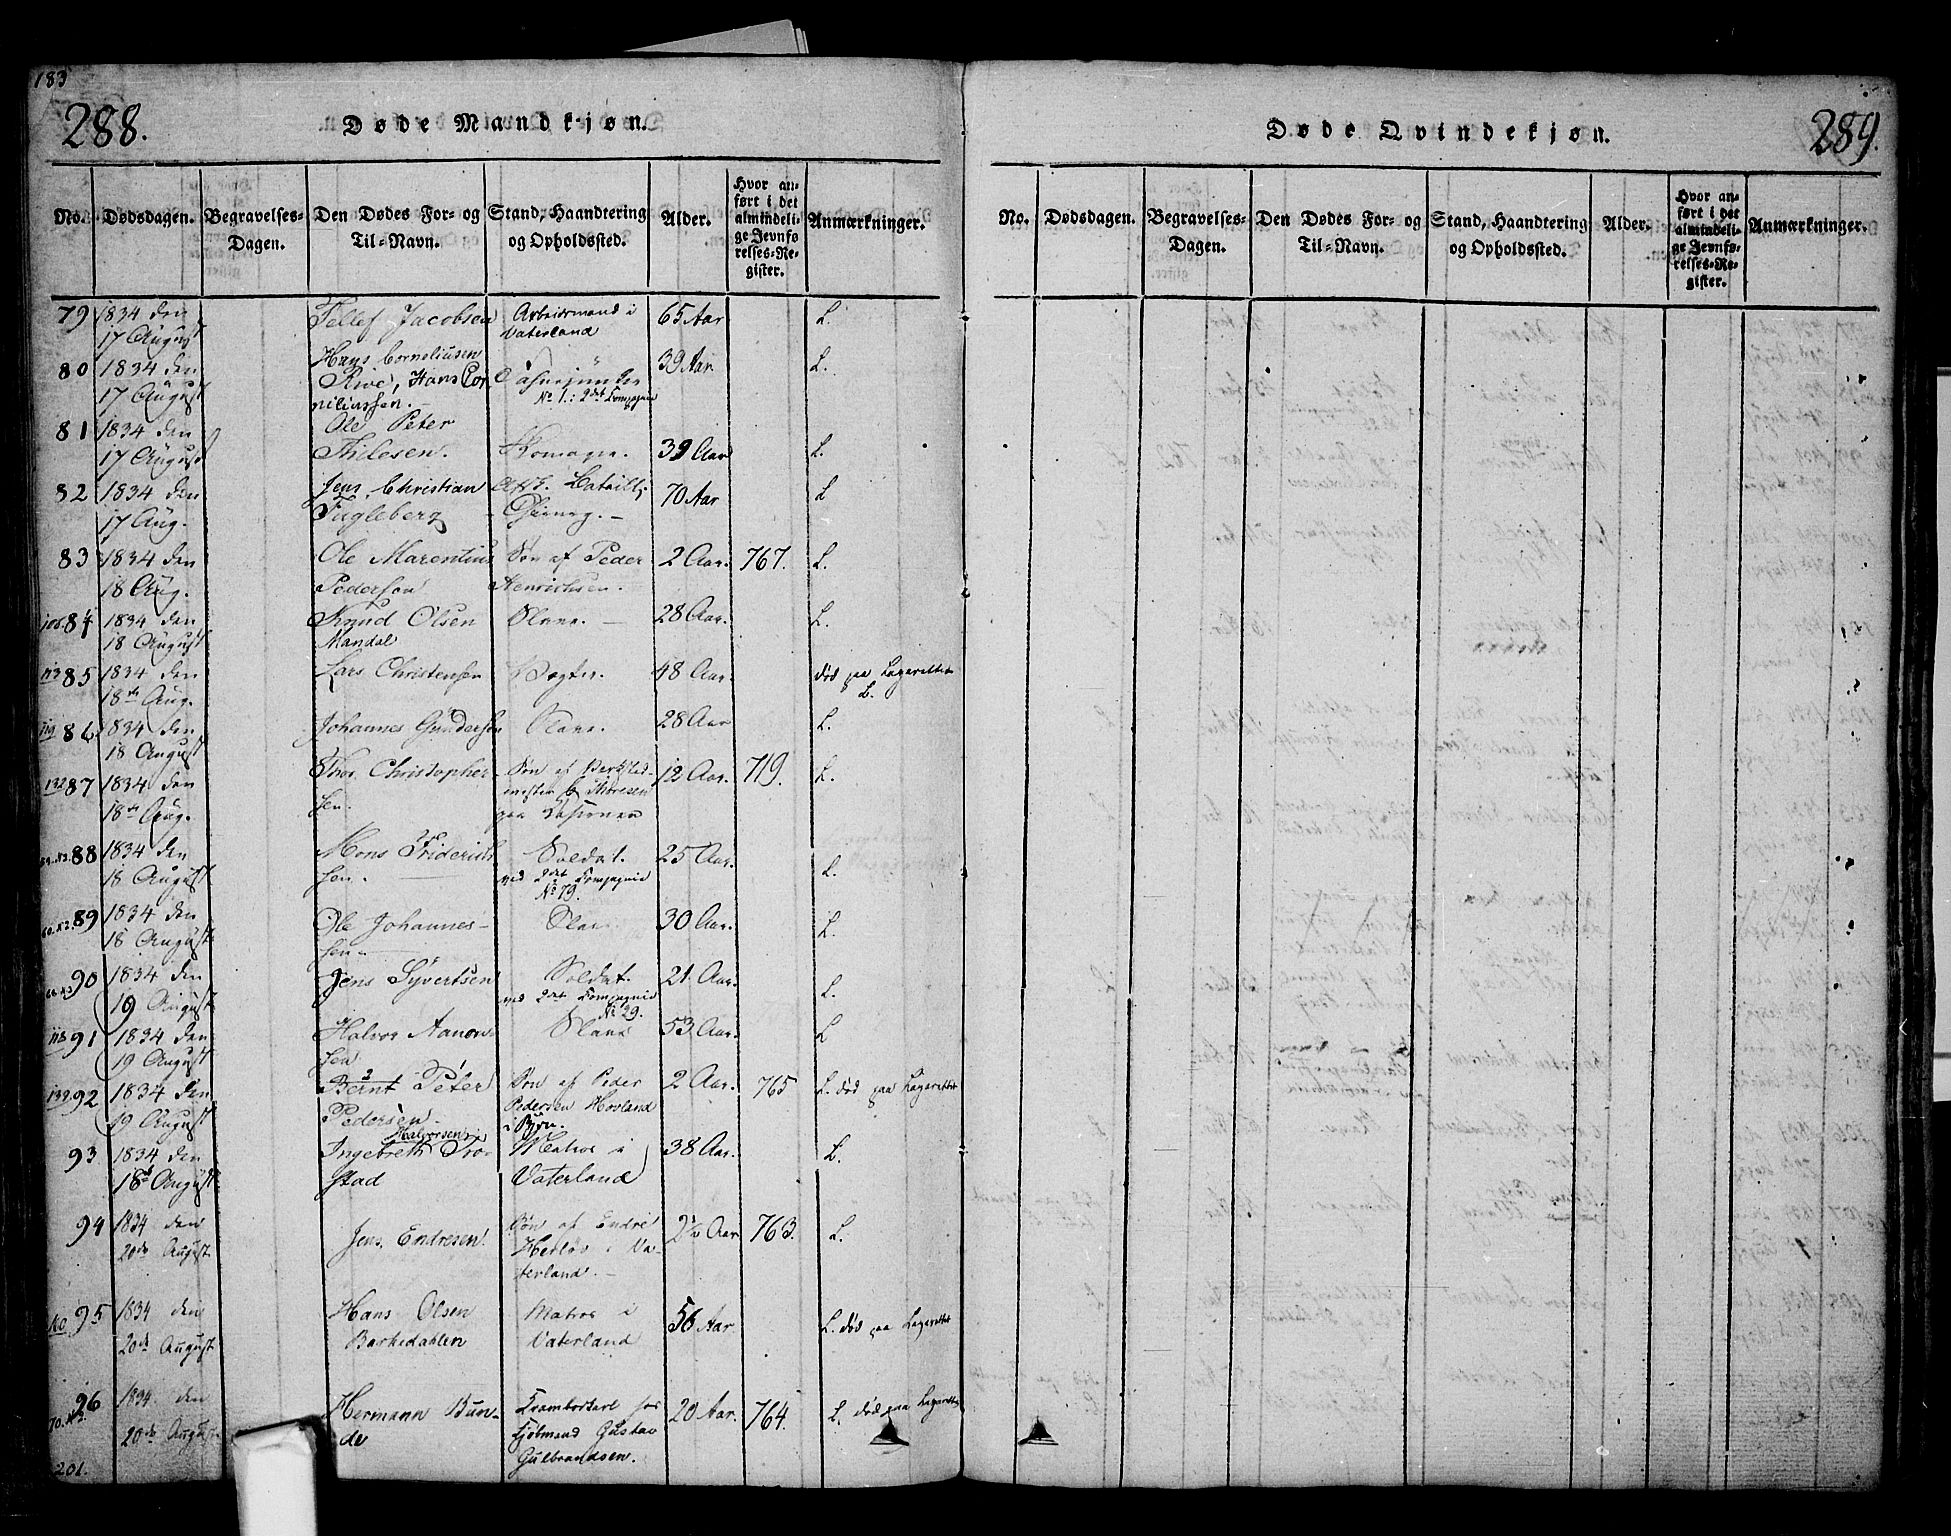 183
288.
Døde Mandkjøn.
No. Dødsdagen. Begravelses-Dagen. Den Dødes For- og Til-Navn. Stand, Haandtering og Opholdssted. Alder. Hvor anført i det almindelige Jevnførelses-Register. Anmærkninger.
79 1834 den 17 August Tellef Jacobsen Arbeidsmand i Vaterland 65 Aar L.
80 1834 den 17 August Hans Corneliusen Rive, Hans Corneliussen. No 1: 2det Compagnie 39 Aar L.
81 1834 den 17 August Ole Peter Thilesen. Skomager. 39 Aar L.
82 1834 den 17 Aug. Jens Christian Fugleberg 70 Aar L
83 1834 den 18 Aug. Ole Marentius Pedersen Søn af Peder Henrichsen. 2 Aar. 767. L.
84 1834 den 18 August Knud Olsen Mandal Slave. 28 Aar. L.
113 85 1834 den 18de Aug. Lars Christensen Vægter. 48 Aar. død paa Lazarettet L.
86 1834 den 18 August Johannes Gundersen Slave. 28 Aar L.
132 87 1834 den 18de Aug. Thor Christophersen. Søn af Thoresen paa 12 Aar. 719. L.
88 1834 den 18 August Mons Friderichsen. Soldat. ved 2det Compagnie No 79. 25 Aar. L.
89 1834 den 18 August Ole Johannessen Slave. 30 Aar. L.
90 1834 den 19 August Jens Syvertsen Soldat. ved 2det Compagnie No 29. 21 Aar. L.
91 1834 den 19 August Halvor Aanonsen Slave 53 Aar. L
139 92 1834 den 19 August Bernt Peter Pedersen. Søn af Peder Pedersen Hovland i Byen. 2 Aar. 765 L. død paa Lazarettet
93 1834 den 18de August Ingebreth Halvorsen Trostad Matros i Vaterland 38 Aar. L.
94 1834 den 20de August Jens Endresen. Søn af Endre i Vaterland. 2½ Aar 763. L.
95 1834 den 20de August Hans Olsen Barkedahlen Matros i Vaterland 56 Aar. L. død paa Lazarettet
96 1834 den 20de August Hermann Bunde Krambodkarl hos Kjøbmand Gustav Gulbrandsen. 20 Aar. 764. L. død paa Lazarettet
201.
289.
Døde Qvindekjøn.
No. Dødsdagen. Begravelses-Dagen. Den Dødes For- og Til-Navn. Stand, Haandtering og Opholdssted. Alder. Hvor anført i det almindelige Jevnførelses-Register. Anmærkninger.